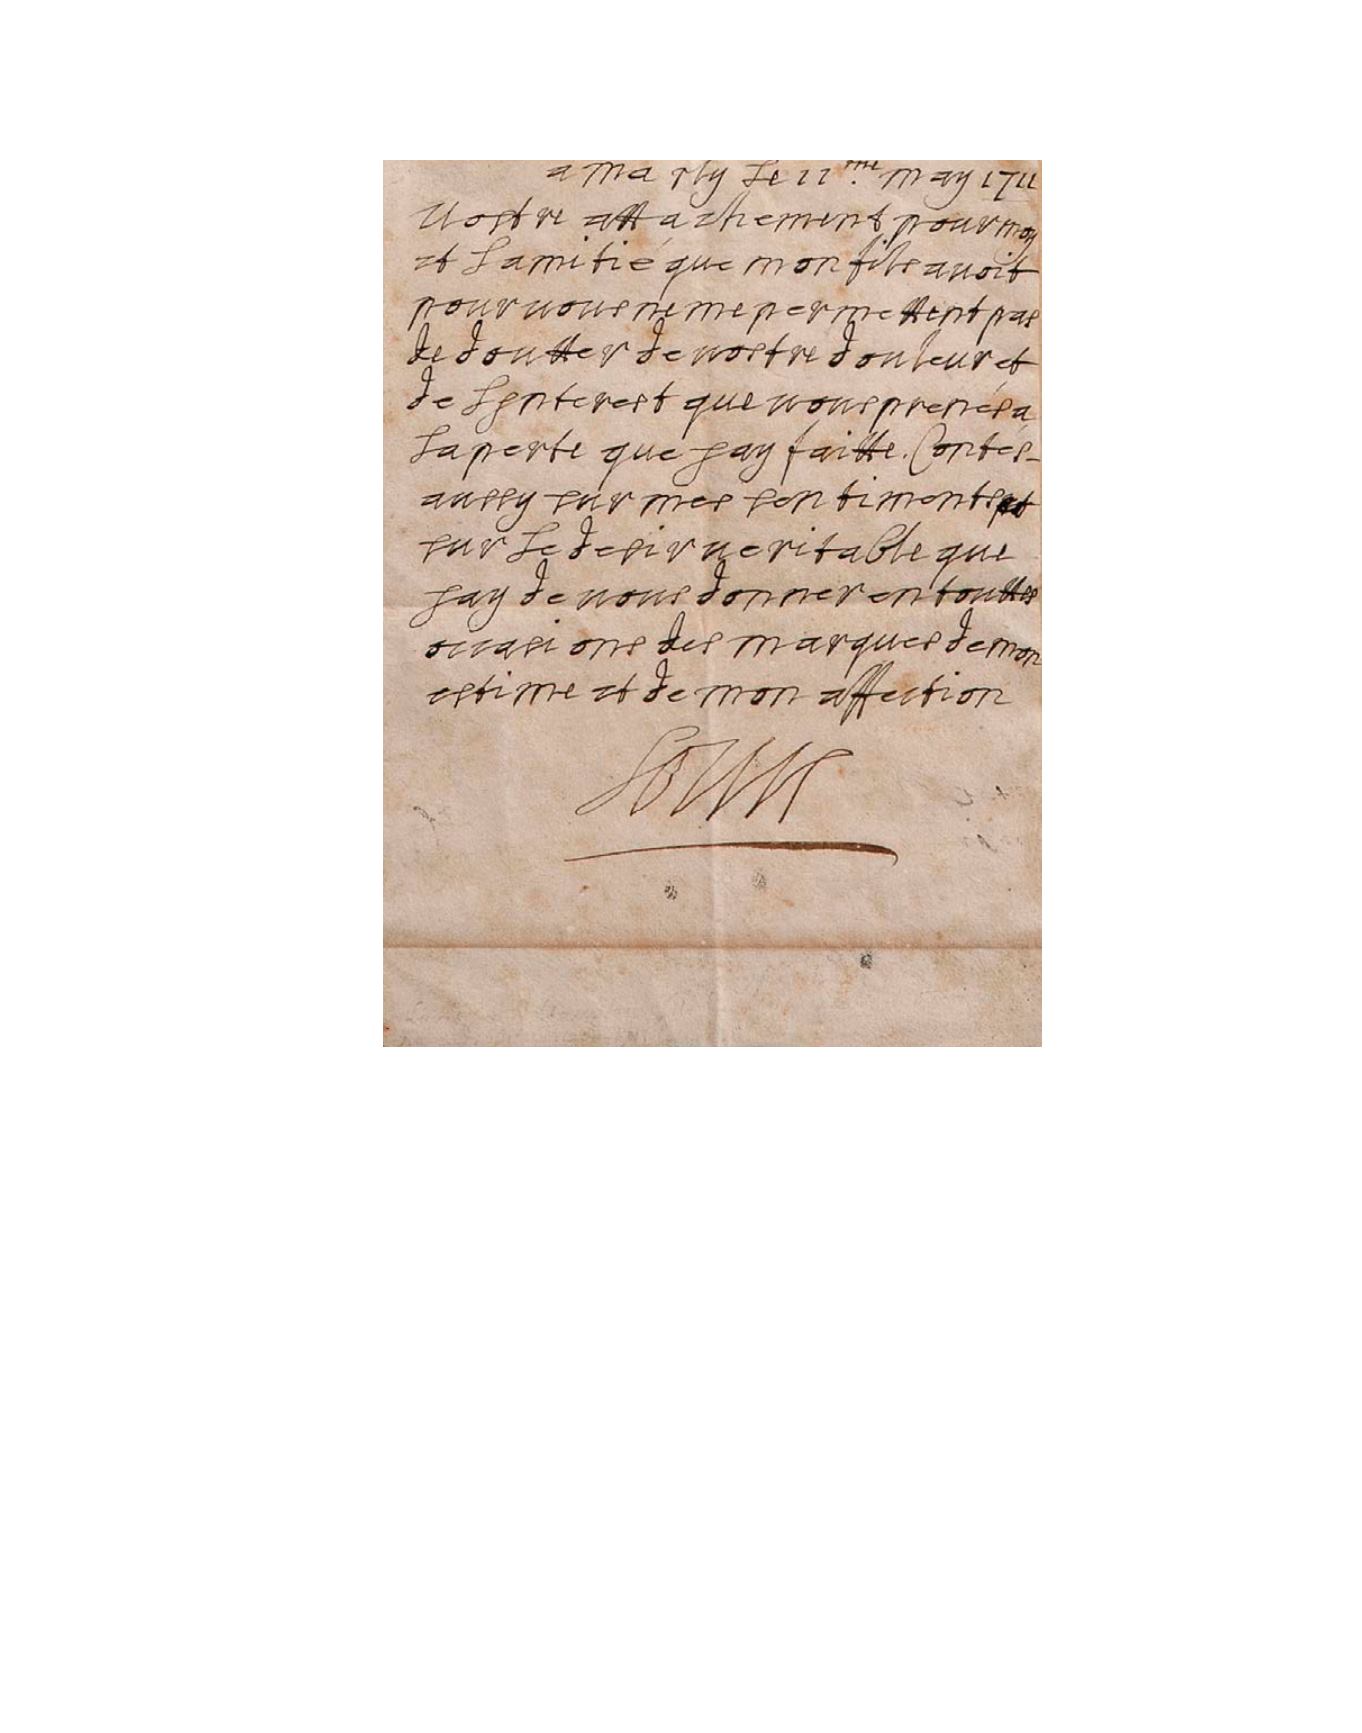 a Marly le 11.me May 1711
Vostre attachement pour moy
et l'amitié que mon fils avoit
pour vous ne me permettent pas
de doutter de vostre douleur et
de lynterest que vous prenés a
la perte que jay faitte. Contés-
aussy sur mes sentiments et
sur le desir veritable que
jay de vous donner en touttes
occasions des marques de mon
estime et de mon affection
Louis